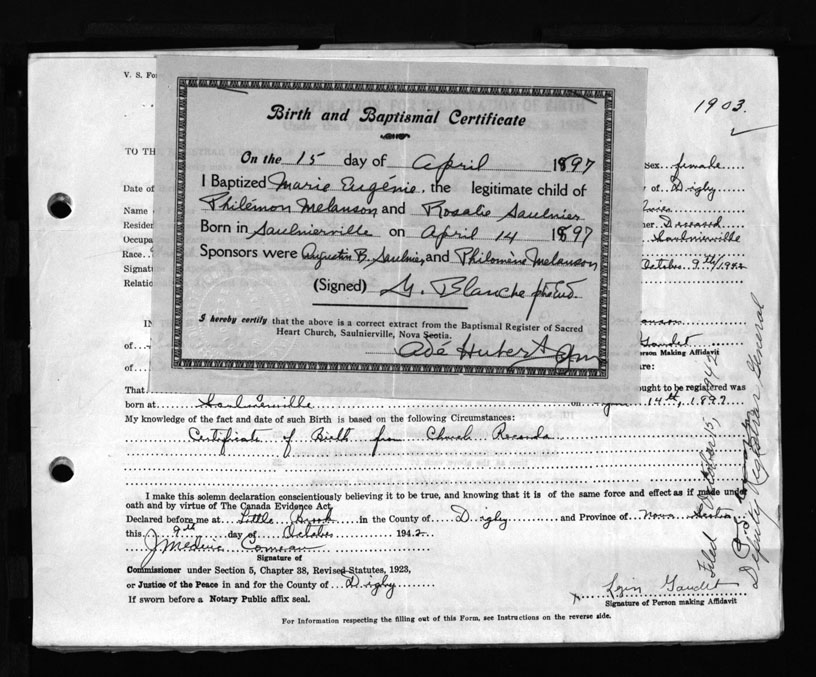 V. S. Fo
1903.
TO TH
Sex..female
Date of
of..Digby
Name
Residen
Deceased
Occupa
Saulnierville
Race
October 9th/1942
Signatu
Relation
Birth and Baptismal Certificate
On the 15 day of April 1897
I Baptized Marie Eugénie, the legitimate child of
Philémon Melanson and Rosalie Saulnier
Born in Saulnierville on April 14 1897
Sponsors were Augustin B. Saulnier and Philomène Melanson
(Signed) G. Blanche
I hereby certify that the above is a correct extract from the Baptismal Register of Sacred
Heart Church, Saulnierville, Nova Scotia.
Adé Hubert
IN T
of
Gaudet
erson Making Affidavit
of
re:
That
ought to be registered was
born at Saulnierville on 14th, 1897
My knowledge of the fact and date of such Birth is based on the following Circumstances:
Certificate of Birth from Church Records
I make this solemn declaration conscientiously believing it to be true, and knowing that it is of the same force and effect as if made under
oath and by virtue of The Canada Evidence Act.
Declared before me at Little Brook in the County of Digby and Province of Nova Scotia
this 9th day of October 1942
J Medric Comeau
Signature of
Commissioner under Section 5, Chapter 38, Revised Statutes, 1923,
or Justice of the Peace in and for the County of Digby
If sworn before a Notary Public affix seal.
x Gaudet
Signature of Person making Affidavit
For Information respecting the filling out of this Form, see Instructions on the reverse side.
Filed October 15, 1942
Deputy Registrar General